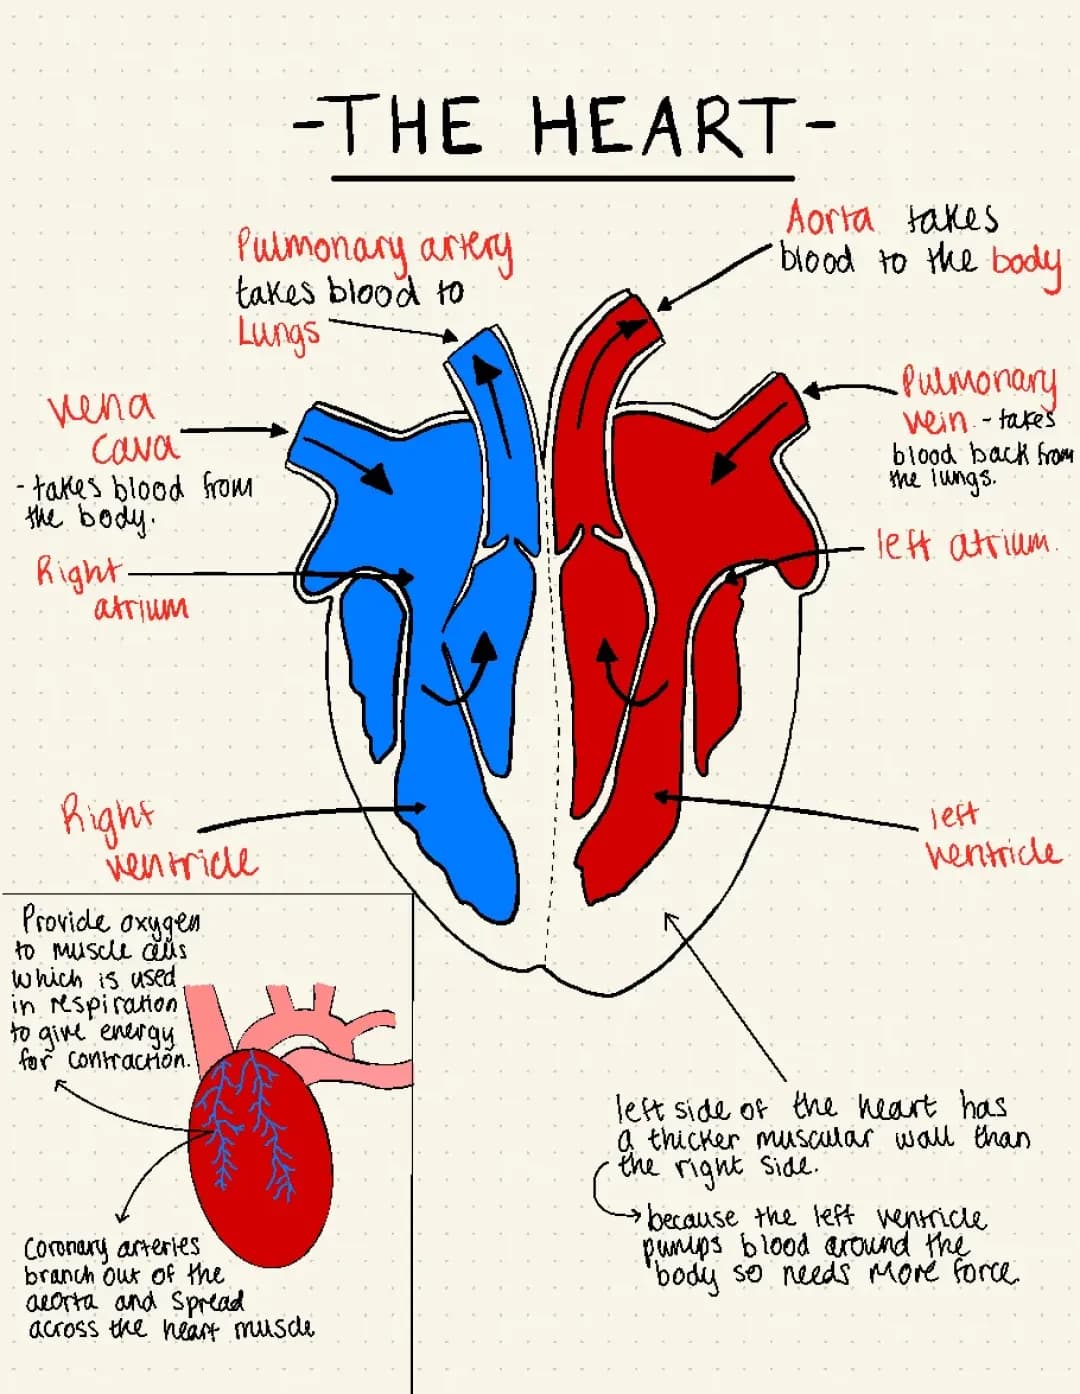 -THE HEART-
Pulmonary artery
takes blood to
Lungs
Aorta takes
blood to the body
Vena
Cava
- takes blood from
the body.
Pulmonary
vein - takes
blood back from
the lungs.
Right
atrium
left atrium.
Right
ventricle
left
ventricle
Provide oxygen
to muscle cells
which is used
in respiration
to give energy
for contraction.
Coronary arteries
branch out of the
aeorta and spread
across the heart muscle
left side of the heart has
a thicker muscular wall than
the right side.
because the left ventricle
pumps blood around the
body so needs more force.